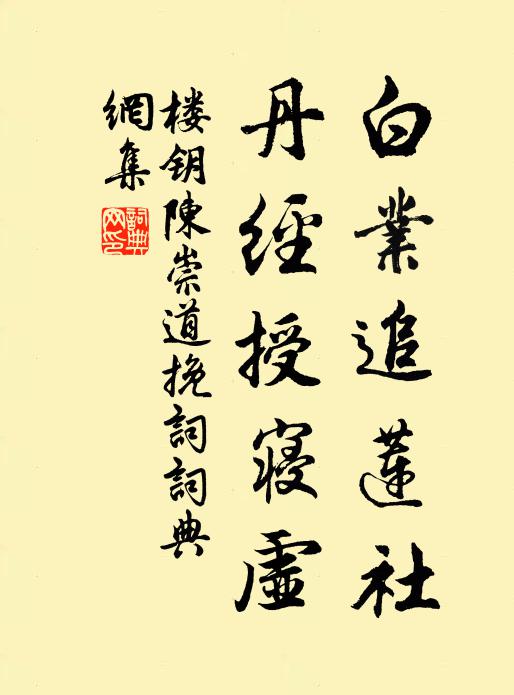 白業追蓮社
丹經授寝虛
楼钥陳崇道挽詞詞典
網集
詞典網印